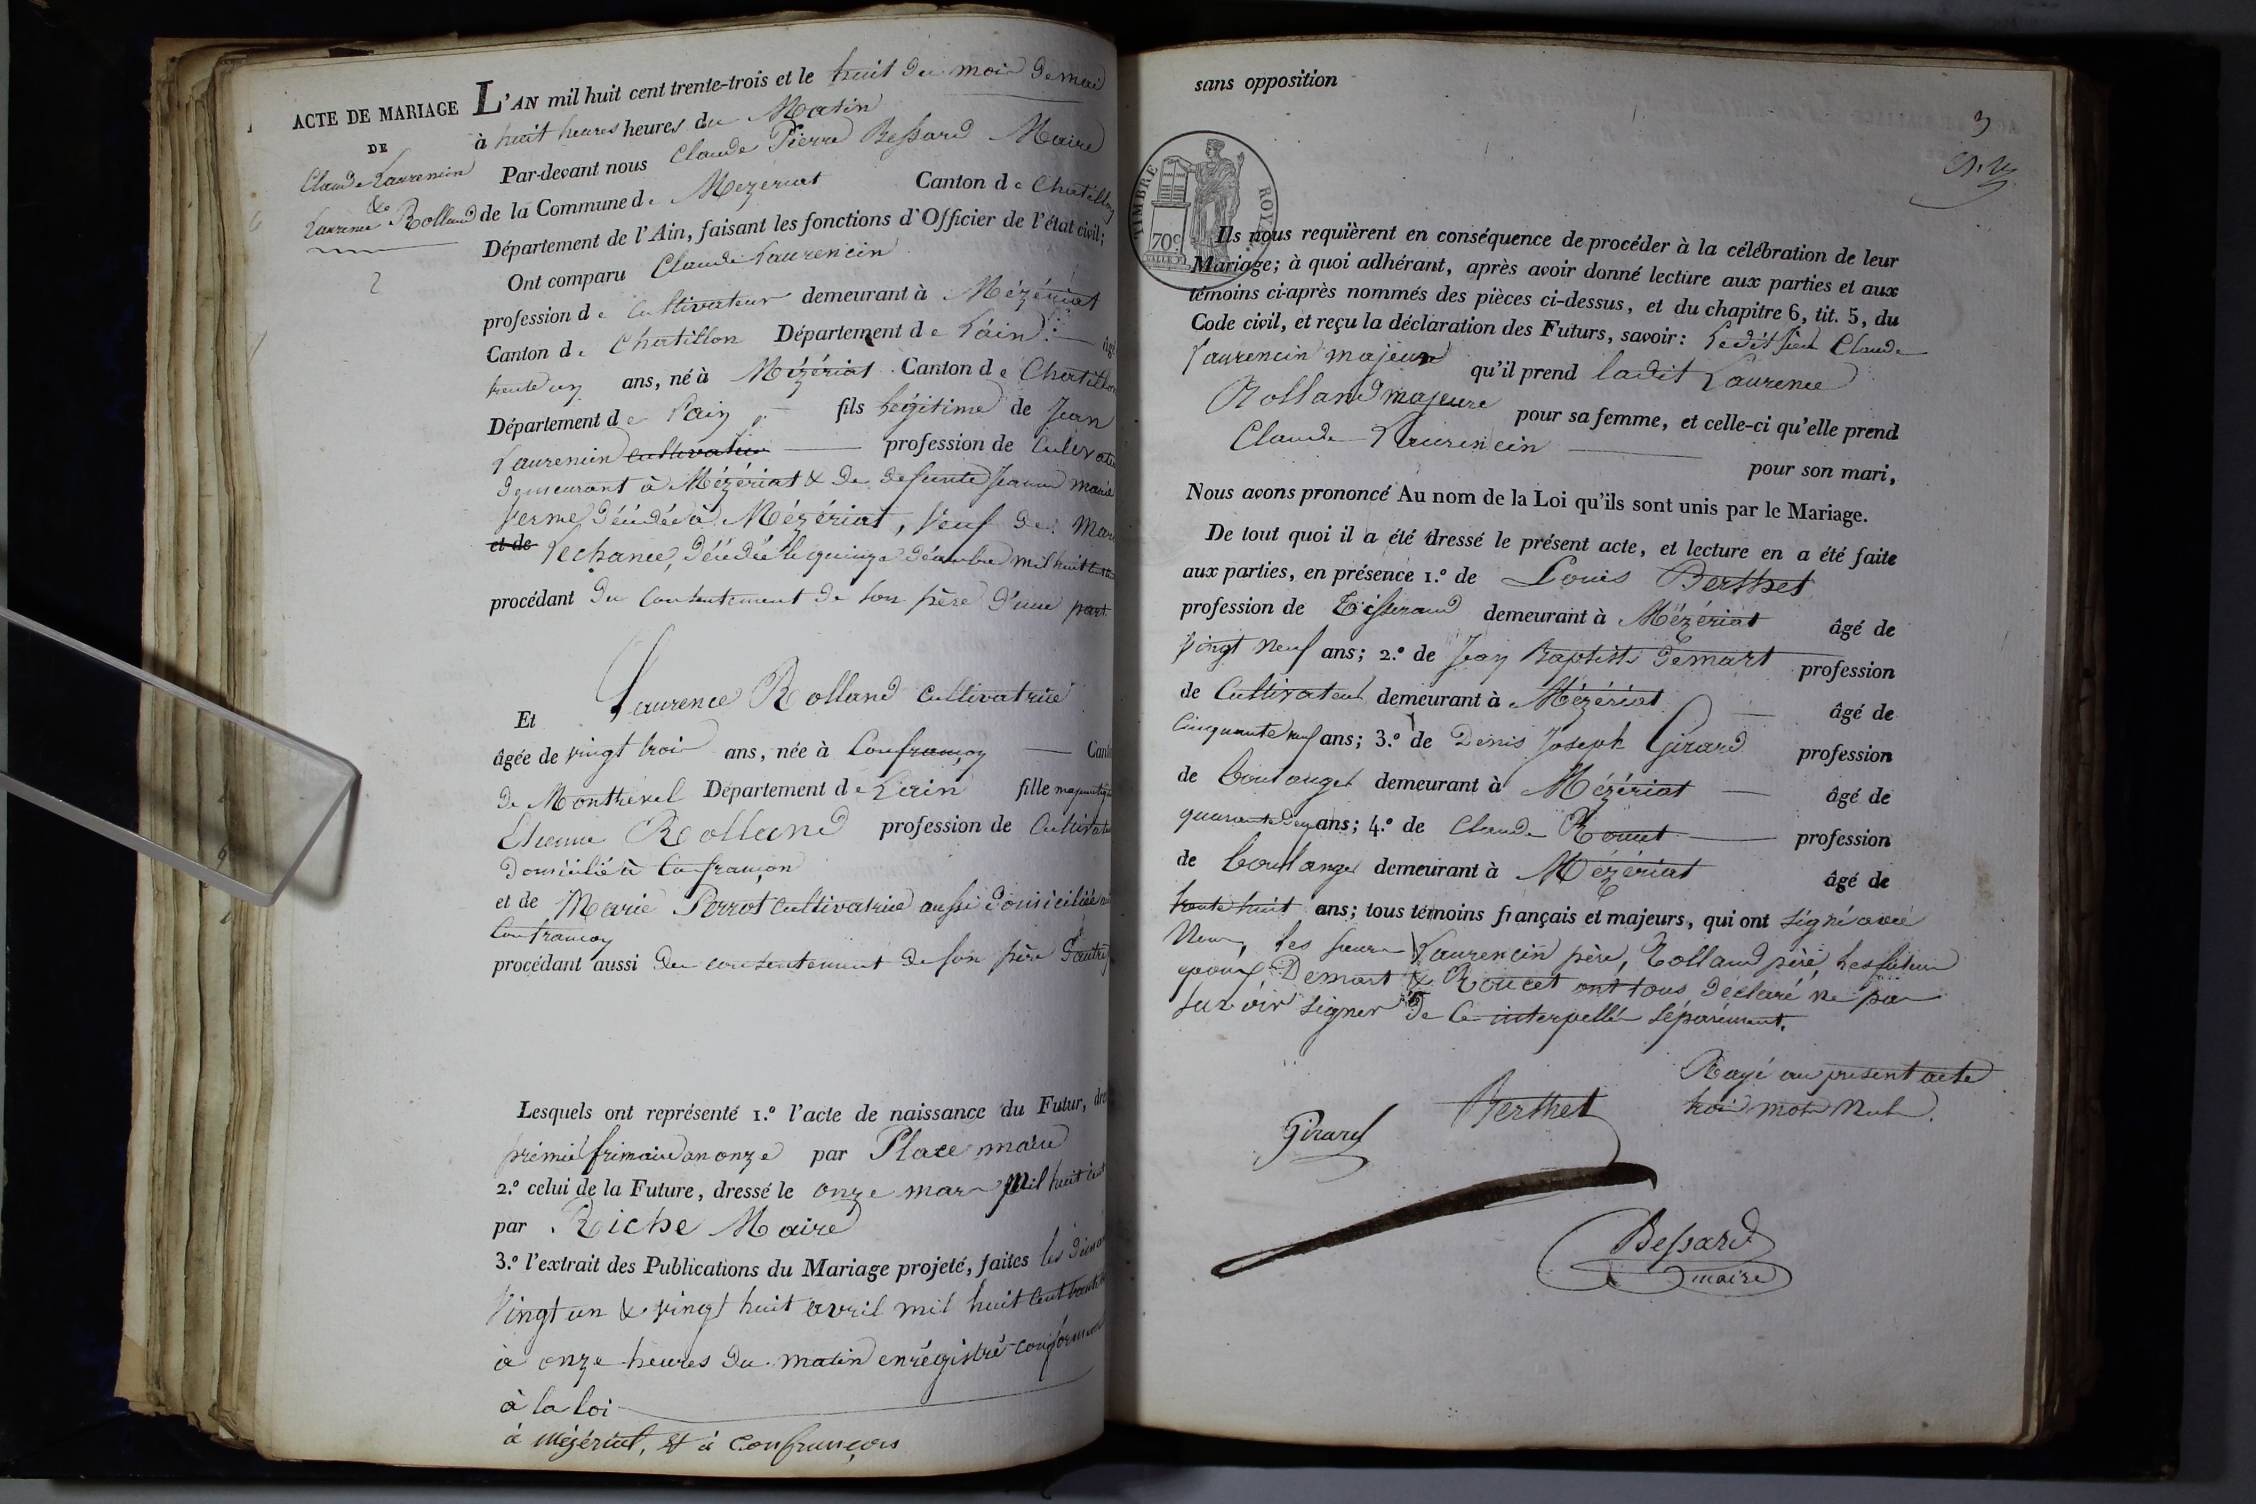 ACTE DE MARIAGE
DE
Claude Laurencin
&
Laurence Rolland
2
L'AN mil huit cent trente-trois et le huit du mois de mai
à huit heures heures du Matin
Par-devant nous Claude Pierre Bessard Maire
de la Commune de Mézériat Canton de Chatillon
Département de l'Ain, faisant les fonctions d'Officier de l'état civil;
Ont comparu Claude Laurencin
profession de Cultivateur demeurant à Mézériat
Canton de Chatillon Département de L'ain âgé
trente un ans, né à Mézériat Canton de Chatillon
Département de L'ain fils légitime de Jean
Laurencin cultivateur profession de Cultivateur
demeurant à Mézériat & de defunte Jeanne marie
décédée à Mézériat, veuf de
et de Lechanee, décédée le quinze décembre mil huit
procédant du consentement de son père d'une part
Et Laurence Rolland cultivatrice
âgée de vingt trois ans, née à Confrançon Canton
de Montrevel Département de L'ain fille
Etienne Rolland profession de Cultivateur
domicilié à Confrançon
et de Marie Perrot cultivatrice aussi domiciliée
Confrançon
procédant aussi du consentement de son père d'autre
Lesquels ont représenté 1.º l'acte de naissance du Futur,
prémier frimaire an onze par Place maire
2.º celui de la Future, dressé le onze mars mil huit cent
par Riche Maire
3.º l'extrait des Publications du Mariage projeté, faites les
vingt un & vingt huit avril mil huit cent trente
à onze heures du matin enrégistré conformément
à la loi
à Mézériat, et à Confrançon
sans opposition
3
TIMBRE ROYAL
70c
Ils nous requièrent en conséquence de procéder à la célébration de leur
Mariage; à quoi adhérant, après avoir donné lecture aux parties et aux
témoins ci-après nommés des pièces ci-dessus, et du chapitre 6, tit. 5, du
Code civil, et reçu la déclaration des Futurs, savoir: Ledit Claude
Laurencin majeur qu'il prend ladit Laurence
Rolland majeure pour sa femme, et celle-ci qu'elle prend
Claude Laurencin pour son mari,
Nous avons prononcé Au nom de la Loi qu'ils sont unis par le Mariage.
De tout quoi il a été dressé le présent acte, et lecture en a été faite
aux parties, en présence 1.º de Louis Berthet
profession de Tisserand demeurant à Mézériat âgé de
vingt neuf ans; 2.º de Jean Baptiste Demart profession
de Cultivateur demeurant à Mézériat âgé de
Cinquante neuf ans; 3.º de Denis Joseph Girard profession
de boulanger demeurant à Mézériat âgé de
quarante deux ans; 4.º de Claude Roucet profession
de boulanger demeurant à Mézériat âgé de
trente huit ans; tous témoins français et majeurs, qui ont signé avec
Nous, les sieurs Laurencin père, Rolland père, les futurs
époux Demart & Roucet ont tous déclaré ne pas
savoir signer de ce interpellés séparément.
Rayé au présent acte
trois mots nuls.
Girard
Berthet
Bessard
maire